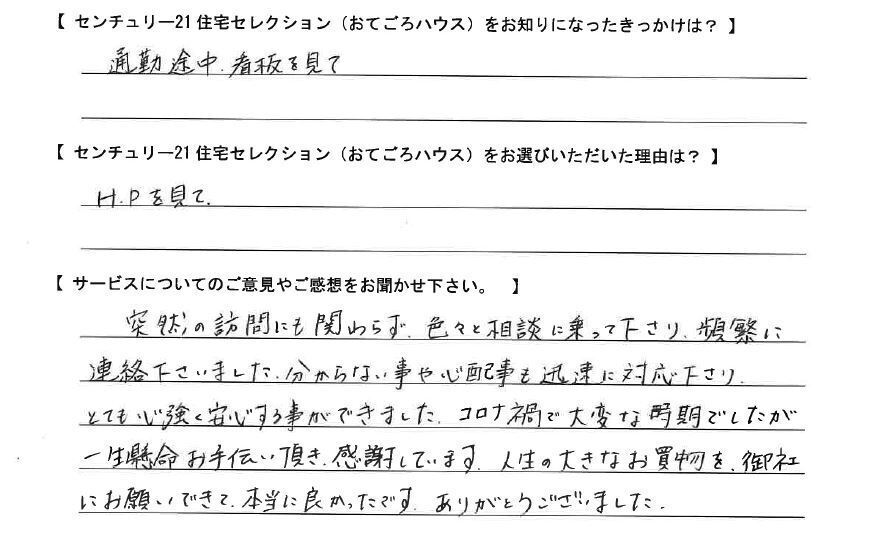 【 センチュリー21住宅セレクション（おてごろハウス）をお知りになったきっかけは？ 】
通勤途中、看板を見て
【 センチュリー21住宅セレクション（おてごろハウス）をお選びいただいた理由は？ 】
H.Pを見て、
【 サービスについてのご意見やご感想をお聞かせ下さい。 】
突然の訪問にも関わらず、色々と相談に乗って下さり、頻繁に
連絡下さいました。分からない事や心配事も迅速に対応下さり、
とても心強く安心する事ができました。コロナ禍で大変な時期でしたが
一生懸命お手伝い頂き、感謝しています。人生の大きなお買物を、御社
にお願いできて、本当に良かったです。ありがとうございました。